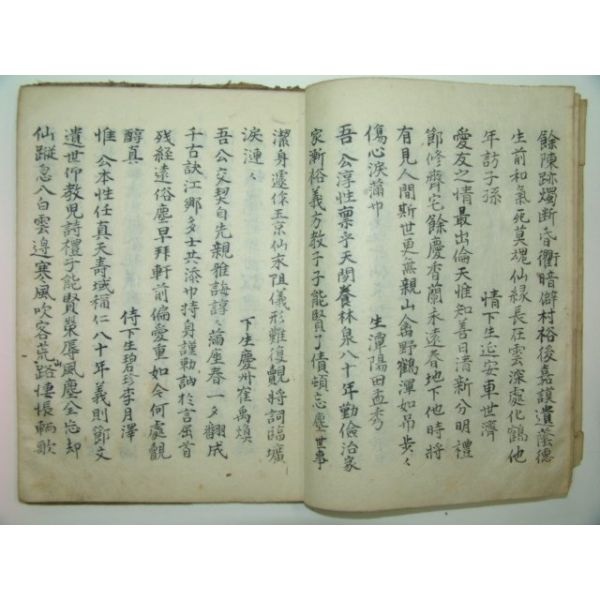 餘陳跡燭斷香銜暗僻村裕後嘉謨遺蔭德
生前和氣死莫塊仙緣長在雲深處化鶴他
年訪子孫 情下生延安車世濟
愛友之情最出倫天惟知善日淸新分明禮
節修齊宅餘慶香蘭永遠春地下他時將
有見人間斯世更無親山禽野鶴渾如吊步々
傷心淚滿巾 生潭陽田孟秀
吾公淳性稟乎天閒養林泉八十年勤儉治家
家漸裕義方教子子能賢了債頓忘塵世事
潔身遽作玉京仙末阻儀形難復覿將詞臨壙
淚漣々 下生慶州崔禹煥
吾公交契自先親雅誨諄々蒲座春一夕翻成
千古訣江鄉多士共添巾持身謹勅訥於言屈首
殘経遠俗塵早拜軒前偏愛重如今何處覿
醇真 侍下生碧珍李月澤
惟公本性任真天壽域稱仁八十年義則節文
遺世仰教児詩禮子能賢榮辱風塵全忘却
仙蹤忽入白雲邊寒風吹客荒山路悽悵輀歌